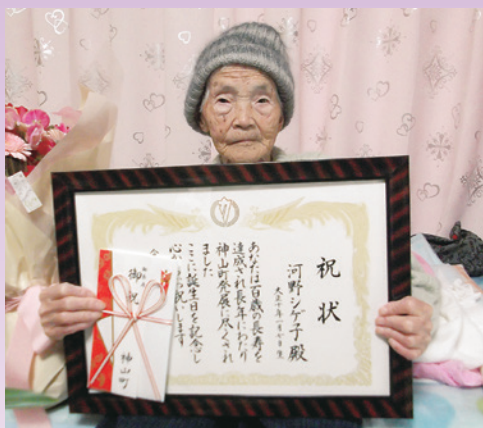 祝状
河野シゲ子殿
大正十年一月日生
あなたは百歳の長寿を
達成され長年にわたり
神山町発展に尽くされ
ました
ここに誕生日を記念し
心からお祝いします
御祝
神山町